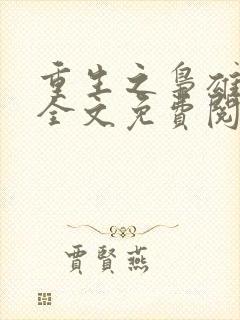 重生之梟雄
全文免費閱
賈賢燕